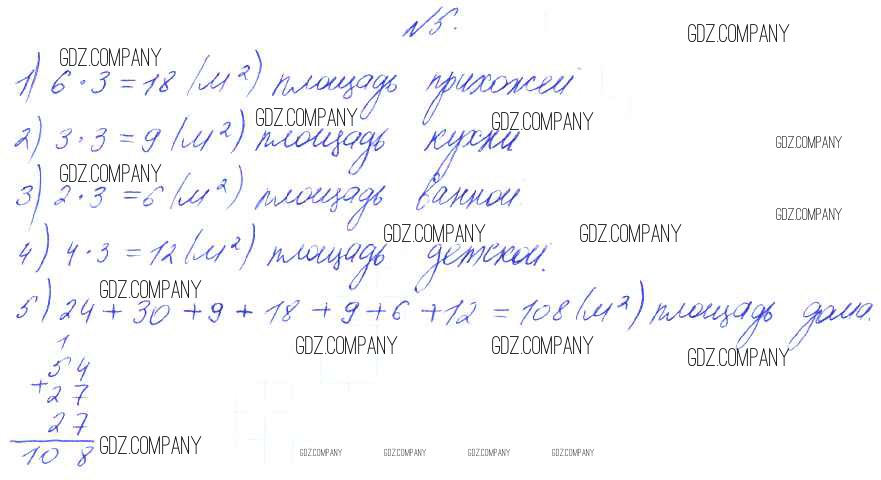 №5.
GDZ.COMPANY
GDZ.COMPANY
1) 6 · 3 = 18 (м²) площадь прихожей
GDZ.COMPANY GDZ.COMPANY
2) 3 · 3 = 9 (м²) площадь кухни
GDZ.COMPANY
GDZ.COMPANY
3) 2 · 3 = 6 (м²) площадь ванной
GDZ.COMPANY
GDZ.COMPANY GDZ.COMPANY
4) 4 · 3 = 12 (м²) площадь детской.
GDZ.COMPANY
5) 24 + 30 + 9 + 18 + 9 + 6 + 12 = 108 (м²) площадь дома.
GDZ.COMPANY GDZ.COMPANY GDZ.COMPANY
1
54
+ 27
27
108
GDZ.COMPANY
GDZ.COMPANY GDZ.COMPANY GDZ.COMPANY GDZ.COMPANY